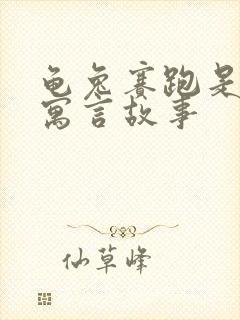 龟兔赛跑是
寓言故事
仙草峰